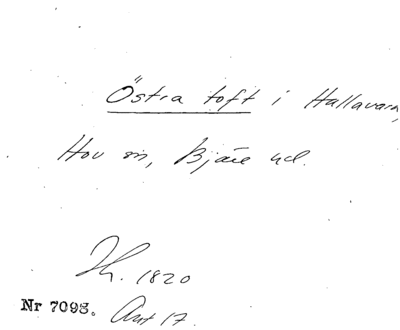 Östra toft i Hallavara,
Hov sn, Bjäre hd.
Th. 1820
Nr 7093. Ant 17.